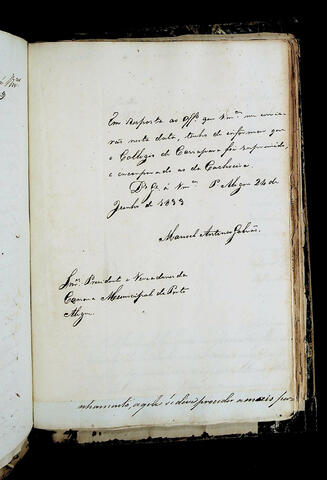 Em resposta ao Offº que Vmces me envia-
rão nesta data, tenho de informar que
o Collegio de Carrapara foi supremido,
e encorporado ao da Cachoeira.
Ds Ge a Vmces P. Alegre 24 de
Junho de 1833
Manoel Antonio Galvão.
Snrs. Presidente e Vereadores da
Camara Municipal de Porto
Alegre.
nhamento, aquele se deve proceder a mais por